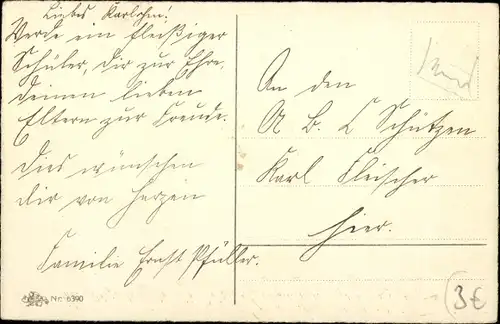 Liebes Karlchen!
Werde ein fleißiger
Schüler, Dir zur Ehre
Deinen lieben
Eltern zur Freude.
Dies wünschen
Dir von Herzen
Familie Ernst Pfüller.
Nr. 6390
An den
A B C Schützen
Karl Fleischer
hier.
3€